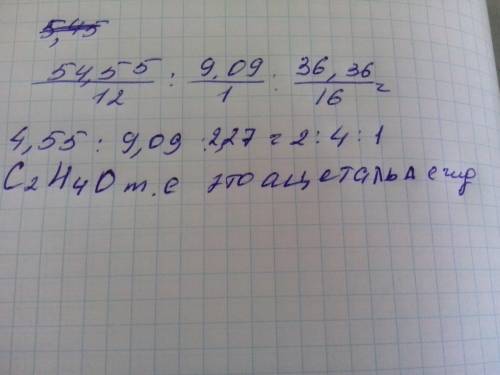 5,45
54,55/12 : 9,09/1 : 36,36/16 =
4,55 : 9,09 : 2,27 = 2 : 4 : 1
C₂H₄O т.е это ацетальдегид